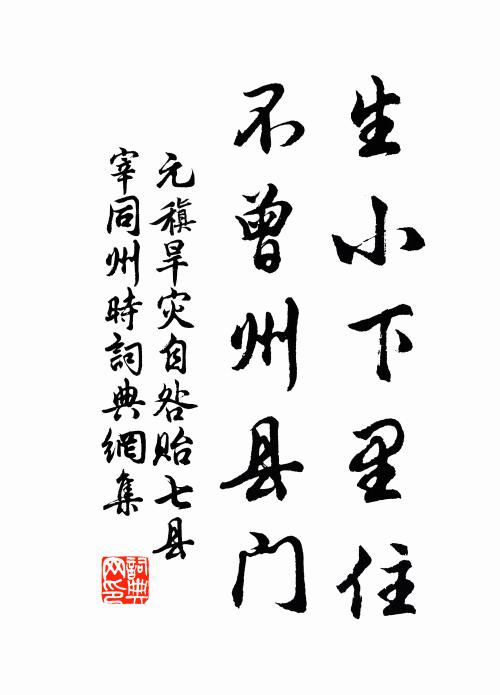 生小下里住
不曾州县门
元稹旱灾自咎贻七县
宰同州時詞典網集
詞典网印